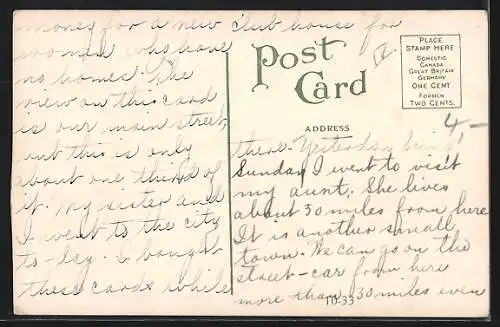 money for a new club house for
women who have
no homes. The
view on this card
is our main street,
but this is only
about one third of
it. My sister and
I went to the city
to-day. I bought
these cards while
Post
Card
IV.
PLACE
STAMP HERE
DOMESTIC
CANADA
GREAT BRITAIN
GERMANY
ONE CENT
FOREIGN
TWO CENTS.
4,-
ADDRESS
there. Yesterday being
Sunday I went to visit
my aunt. She lives
about 30 miles from here
It is another small
town. We can go on the
street-car from here
more than 30 miles even
10-33